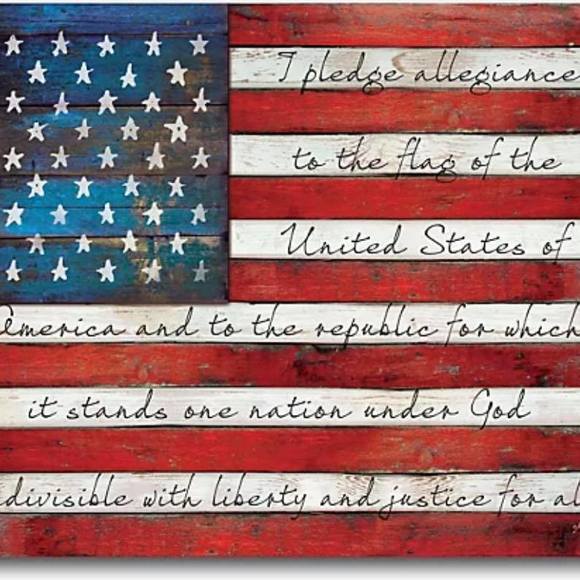 I pledge allegiance
to the flag of the
United States of
America and to the republic for which
it stands one nation under God
divisible with liberty and justice for al